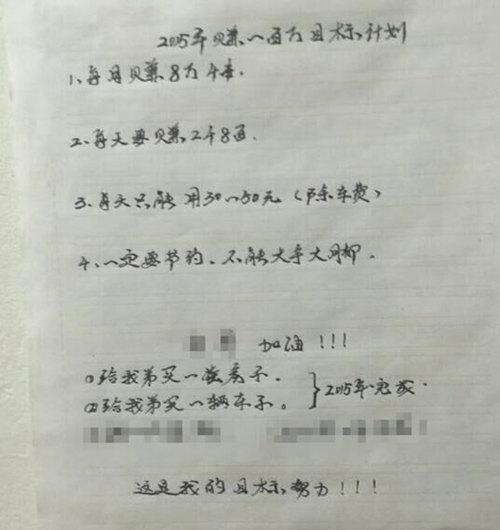 2015年赚一百万目标计划
1、每月赚8万4千.
2、每天要赚2千8百.
3、每天只能用30一50元（除车费）
4、一定要节约、不能大手大脚.
加油!!!
①给我弟买一张房子.
②给我弟买一辆车子。 } 2015年完成.
这是我的目标努力!!!